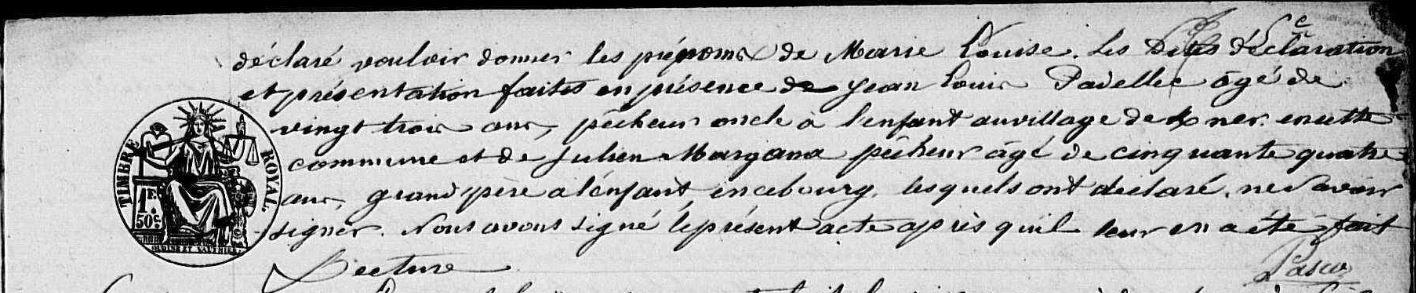 déclaré vouloir donner les prénoms de Marie Louise. Les Dites déclaration
et présentation faites en présence de Jean Louis Padellec agé de
vingt trois ans, pêcheur oncle à l'enfant au village de ner en cette
commune et de Julien Margana pêcheur âgé de cinquante quatre
ans, grand père a l'enfant en ce bourg. lesquels ont déclaré, ne savoir
signer. Nous avons signé le présent acte après qu'il leur en a été fait
Lecture
Pasco
TIMBRE ROYAL.
1F.
50c.